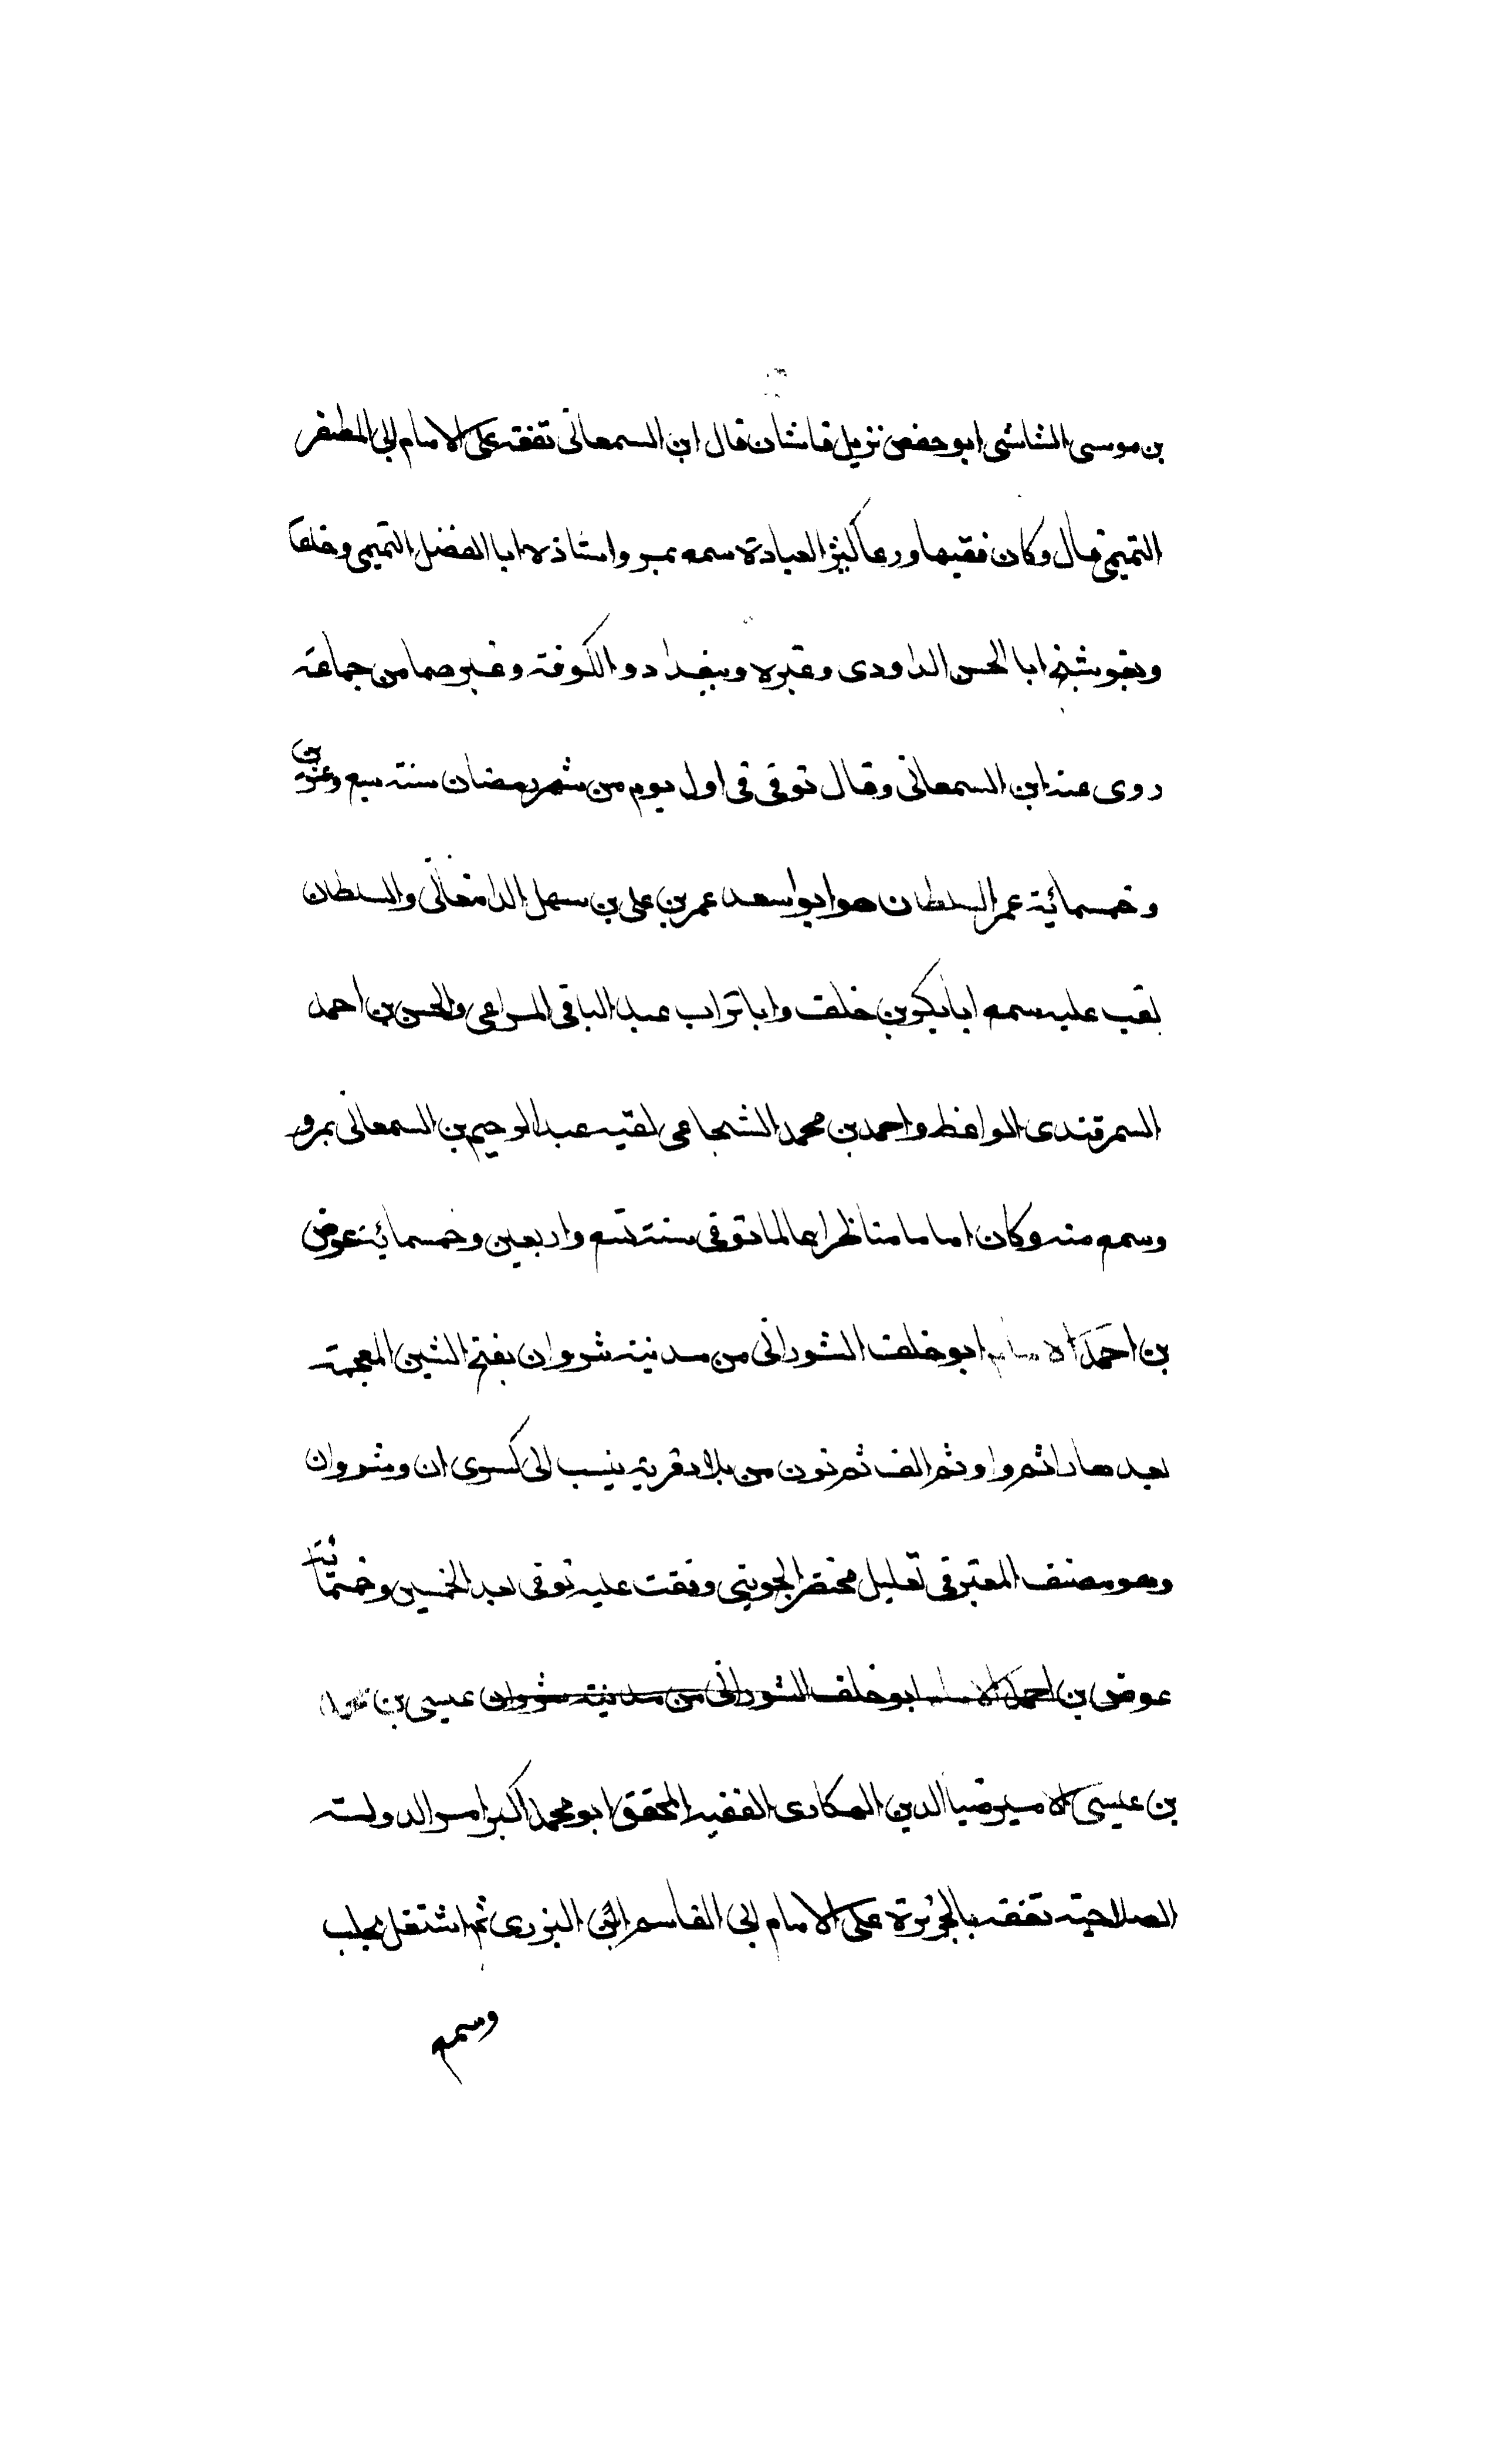 بن موسى الشاشى ابو حفص نزيل فاشان قال ابن السمعانى تفقه على الامام ابى المظفر
التميمى قال وكان فقيها ورعا كثير العبادة سمع بمرو استاذه ابا الفضل التميمى وخلقا
وبفوشنج ابا الحسن الداودى وغيره وببغداد والكوفة وغيرهما من جماعة
روى عنه ابن السمعانى وقال توفى فى اول يوم من شهر رمضان سنة سبع وعشرين
وخمسمائة عمر السلطان هو ابو اسعد عمر بن على بن سهل الدامغانى والسلطان
لقب عليه سمع ابا بكر بن خلف وابا تراب عبد الباقى المراغى والحسن بن احمد
السمرقندى الواعظ واحمد بن محمد الشجاعى لقيه عبد الرحيم بن السمعانى بمرو
وسمع منه وكان اماما مناظرا عالما توفى سنة تسع واربعين وخمسمائة عوض
بن احمد الامام ابو خلف الشورانى من مدينة شروان بفتح الشين المعجمة
بعدها راء ثم واو ثم الف ثم نون من بلاد قرية ينسب الى كسوى ان وشروان
وهو مصنف المعتبر فى تعليل مختصر الجوينى وقفت عليه توفى بعد الخمسين وخمسمائة
عوض بن احمد الامام ابو خلف الشورانى من مدينة شروان عيسى بن
بن عيسى الامير ضيا الدين الهكارى الفقيه المحقق ابو محمد اكبر امرا الدولة
الصلاحية تفقه بالجزيرة على الامام ابى القاسم ابن البزرى ثم اشتغل بحلب
وسمع